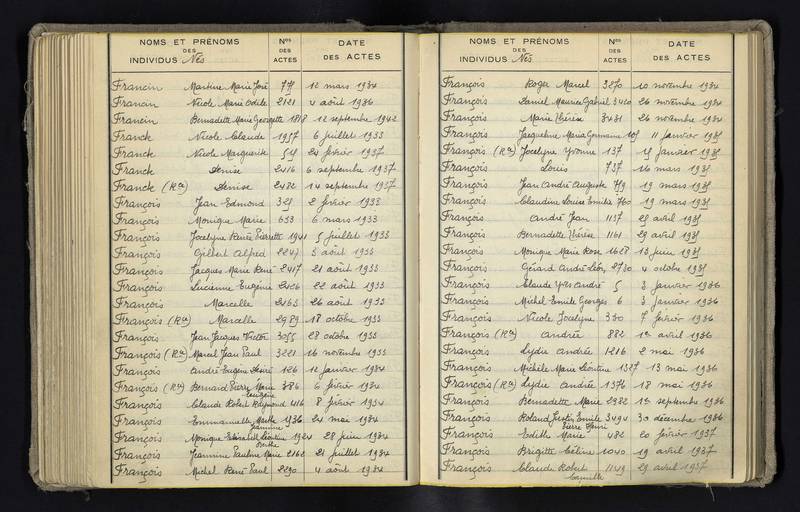 NOMS ET PRÉNOMS DES INDIVIDUS Nés
Nos DES ACTES
DATE DES ACTES
Francin Martine Marie José 12 mars 1934
Francin Nicole Marie Odile 2121 4 août 1936
Francin Bernadette Marie Georgette 1818 12 septembre 1942
Franck Nicole Claude 1957 6 juillet 1933
Franck Nicole Marguerite 24 février 1937
Franck Denise 2416 6 septembre 1937
Franck (Ron) Denise 2482 14 septembre 1937
François Jean Edmond 2 février 1933
François Monique Marie 633 6 mars 1933
François Jocelyne Renée Pierrette 1941 5 juillet 1933
François Gilbert Alfred 2247 3 août 1933
François Jacques Marie René 2417 21 août 1933
François Lucienne Eugénie 2426 22 août 1933
François Marcelle 2463 26 août 1933
François (Ron) Marcelle 2989 18 octobre 1933
François Jean Jacques Victor 3055 28 octobre 1933
François (Ron) Marcel Jean Paul 3221 16 novembre 1933
François André Eugène Désiré 126 12 janvier 1934
François (Ron) Bernard Pierre Marie 386 6 février 1934
Eugène
François Claude Robert Raymond 416 8 février 1934
François Emmanuelle Marthe 1936 24 mai 1934
Jeannine
François Monique Elisabeth Léontine 1924 28 juin 1934
Berthe
François Jeannine Pauline Marie 2162 21 juillet 1934
François Michel René Paul 2290 4 août 1934
NOMS ET PRÉNOMS DES INDIVIDUS Nés
Nos DES ACTES
DATE DES ACTES
François Roger Marcel 3270 10 novembre 1934
François Daniel Maurice Gabriel 3420 26 novembre 1934
François Marie Thérèse 3431 26 novembre 1934
François Jacqueline Marie Germaine 11 janvier 1935
François (Ron) Jocelyne Yvonne 137 15 janvier 1935
François Louis 737 16 mars 1935
François Jean André Auguste 759 19 mars 1935
François Claudine Louise Emilie 760 19 mars 1935
François André Jean 1137 25 avril 1935
François Bernadette Thérèse 1161 29 avril 1935
François Monique Marie Rose 1628 13 juin 1935
François Gérard André Léon 2730 4 octobre 1935
François Claude Yves André 5 3 janvier 1936
François Michel Emile Georges 6 3 janvier 1936
François Nicole Jocelyne 330 7 février 1936
François (Ron) Andrée 882 1er avril 1936
François Lydie Andrée 1216 2 mai 1936
François Michèle Marie Léontine 1327 13 mai 1936
François (Ron) Lydie Andrée 1376 18 mai 1936
François Bernadette Marie 2382 1er septembre 1936
François Roland Justin Emile 3494 30 décembre 1936
Pierre Henri
François Odette Marie 482 20 février 1937
François Brigitte Céline 1040 19 avril 1937
François Claude Robert 1149 29 avril 1937
Camille